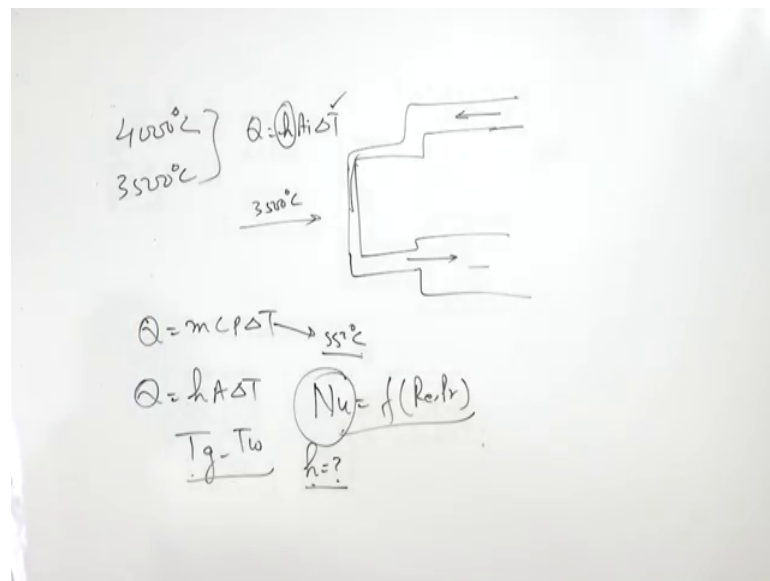 4000°C
3500°C
Q = h Ai ΔT ✓
3500°C
Q = m CP ΔT → 55°C
Q = h A ΔT
Nu = f(Re, Pr)
Tg - Tw
h = ?